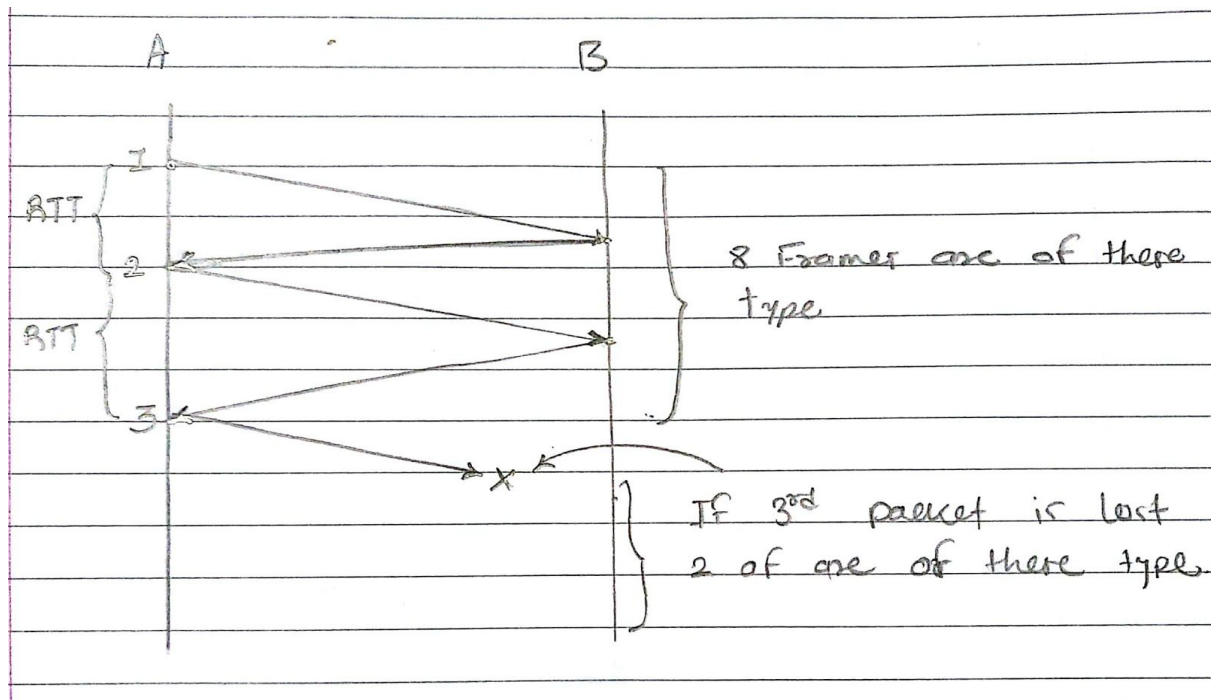 A B
1
RTT
2
RTT
3
8 Frames are of these
type
X
If 3rd packet is lost
2 of are of these type